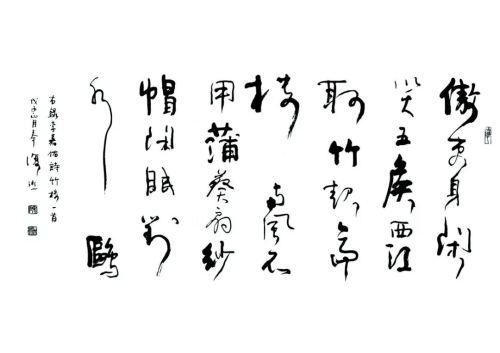 傲吏身閑
笑五侯西江
取竹起高
樓南風不
用蒲葵扇紗
帽閑眠對
水鷗
右錄李嘉佑詩竹樓一首
戊子月